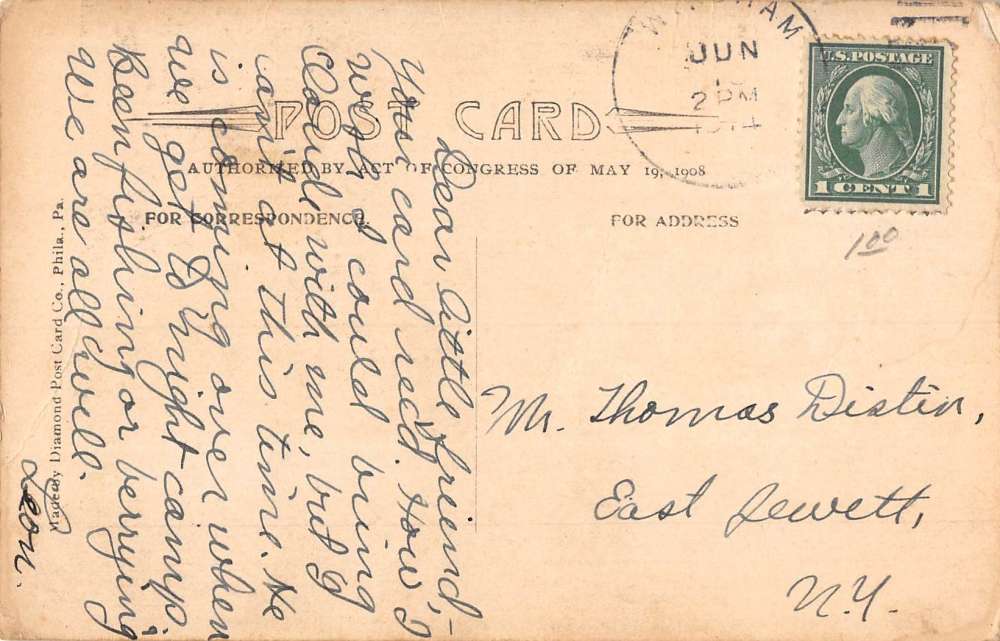 WINDHAM
JUN
2 PM
1914
U.S. POSTAGE
1 CENT 1
POST CARD
AUTHORIZED BY ACT OF CONGRESS OF MAY 19, 1908
FOR CORRESPONDENCE.
FOR ADDRESS
1 00
Made by Diamond Post Card Co., Phila., Pa.
Dear Little friend,-
Your card rec'd. How I
wish I could bring
Claude with me, but I
can't at this time. He
is coming over when
we get to
night camp
Been fishing or berrying
We are all well.
Leon.
Mr. Thomas Distin,
East Jewett,
N.Y.